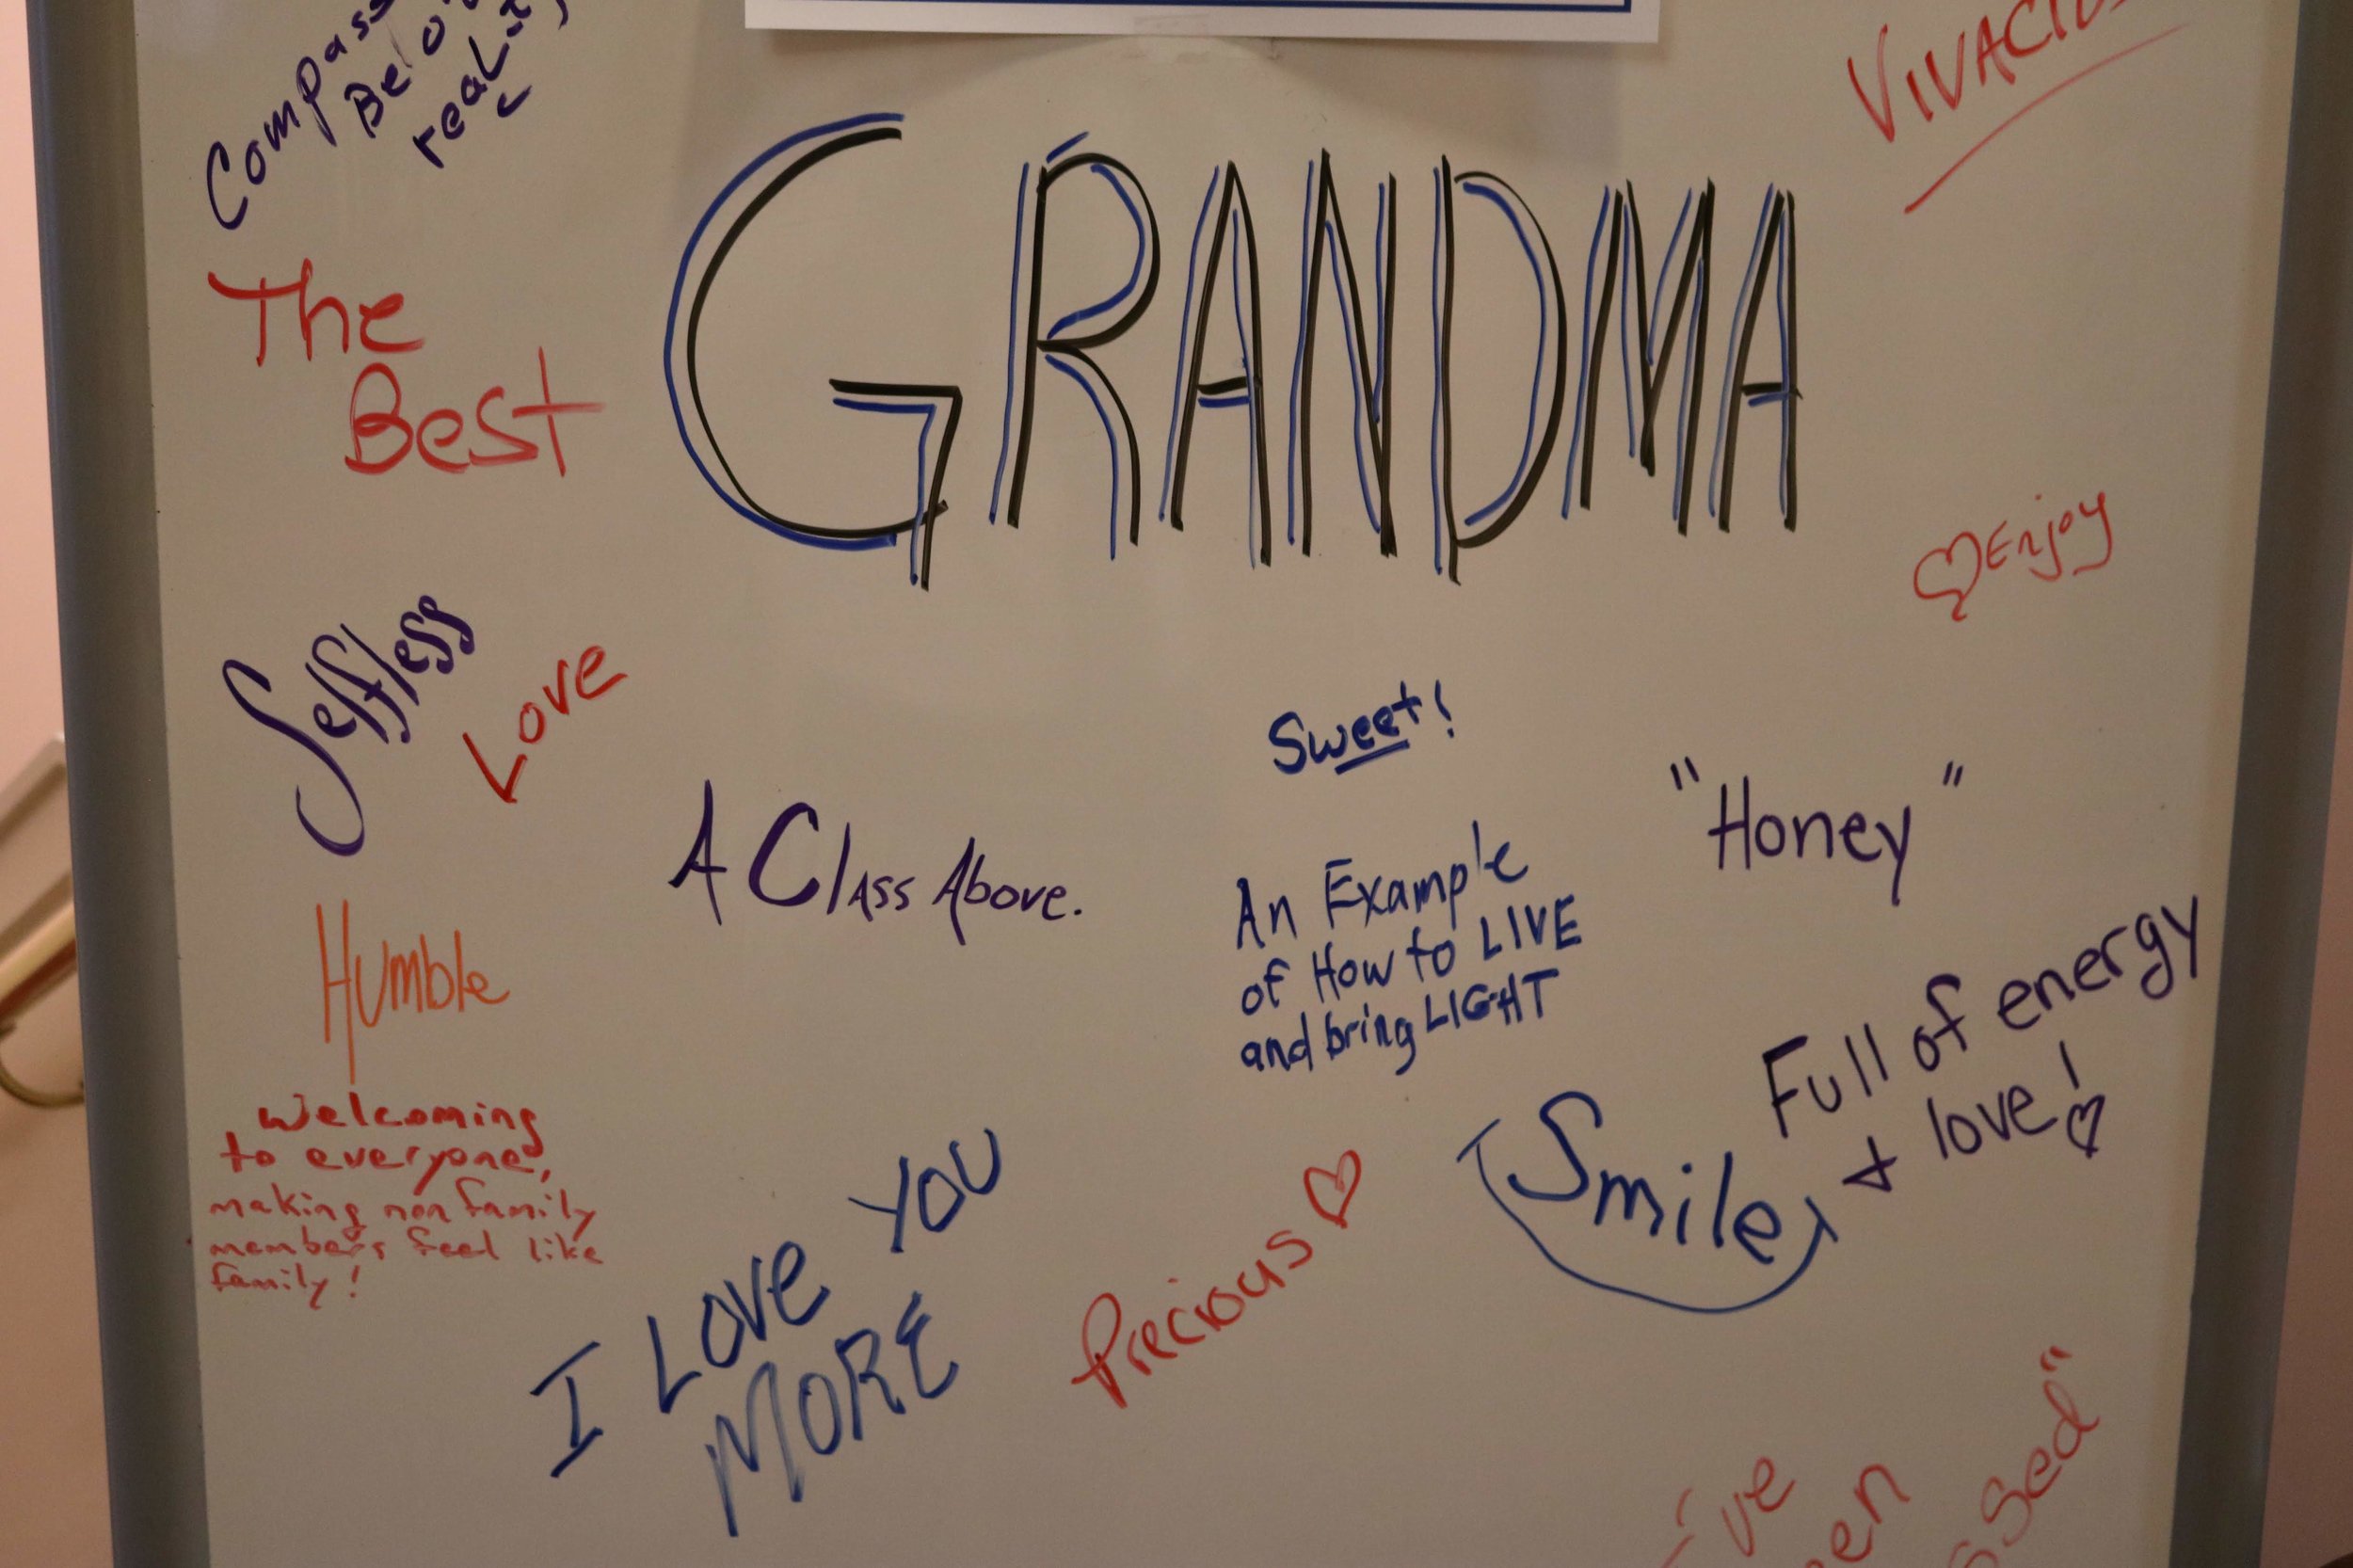 GRANDMA
The
Best
♡ Enjoy
Selfless
Love
Sweet!
"Honey"
A Class Above.
An Example
of How to LIVE
and bring LIGHT
Humble
Full of energy
+ love! ♡
Welcoming
to everyone,
making non family
members feel like
family!
Smile
I Love YOU
MORE
Precious ♡